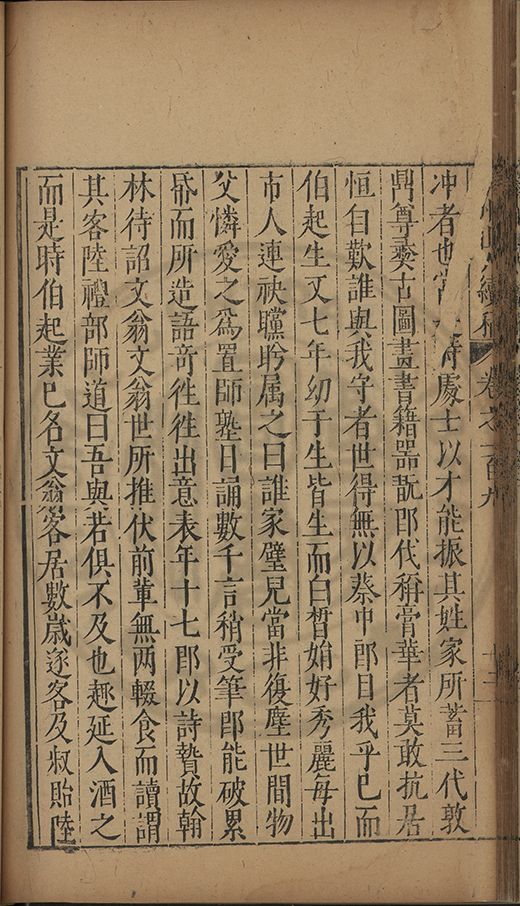 續稿 卷之一百九 十二
冲者也 處士以才能振其姓家所蓄三代敦
鼎尊彝古圖畫書籍器翫卽代稱膏華者莫敢抗居
恒自歎誰與我守者世得無以蔡中郎目我乎已而
伯起生又七年幼于生皆生而白皙娟好秀麗每出
市人連袂矘盻属之曰誰家璧兒當非復塵世間物
父憐愛之爲置師塾日誦數千言稍受筆卽能破累
帋而所造語奇徃徃出意表年十七卽以詩贄故翰
林待詔文翁文翁世所推伏前輩無两輟食而讀謂
其客陸禮部師道曰吾與若俱不及也趣延入酒之
而是時伯起業已名文翁客居數歲逐客及叔貽陸